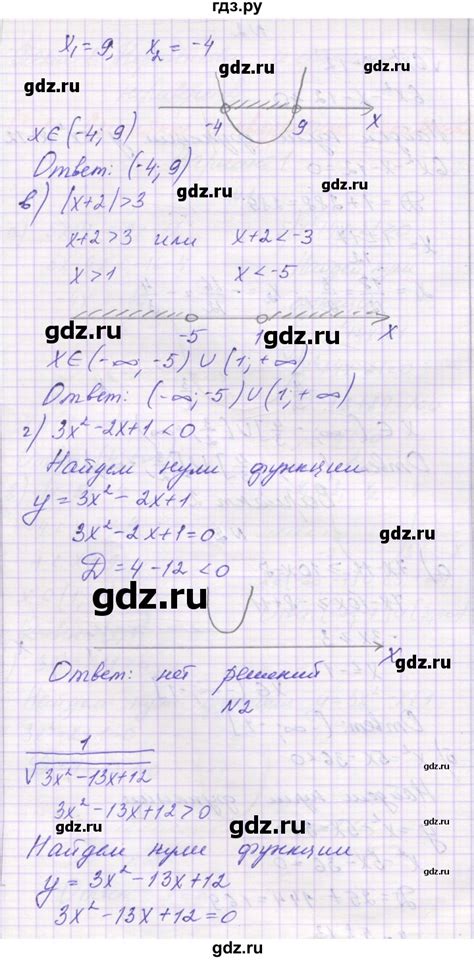 гдз.ру
x₁ = 9, x₂ = -4
gdz.ru
gdz.ru
-4 9 x
x∈(-4; 9)
Ответ: (-4; 9)
gdz.ru
gdz.ru
в) |x+2|>3
x+2>3 или x+2<-3
x>1 x<-5
gdz.ru
gdz.ru
-5 1 x
gdz.ru
x∈(-∞; -5)∪(1; +∞)
gdz.ru
Ответ: (-∞; -5)∪(1; +∞)
г) 3x²-2x+1<0
gdz.ru
Найдем нули функции
y = 3x²-2x+1
gdz.ru
3x²-2x+1=0
Д = 4-12<0
gdz.ru
gdz.ru
x
gdz.ru
Ответ: нет решений
№2
gdz.ru
1
√3x²-13x+12
gdz.ru
3x²-13x+12>0
gdz.ru
gdz.ru
Найдем нули функции
y = 3x²-13x+12
gdz.ru
3x²-13x+12=0
gdz.ru
gdz.ru